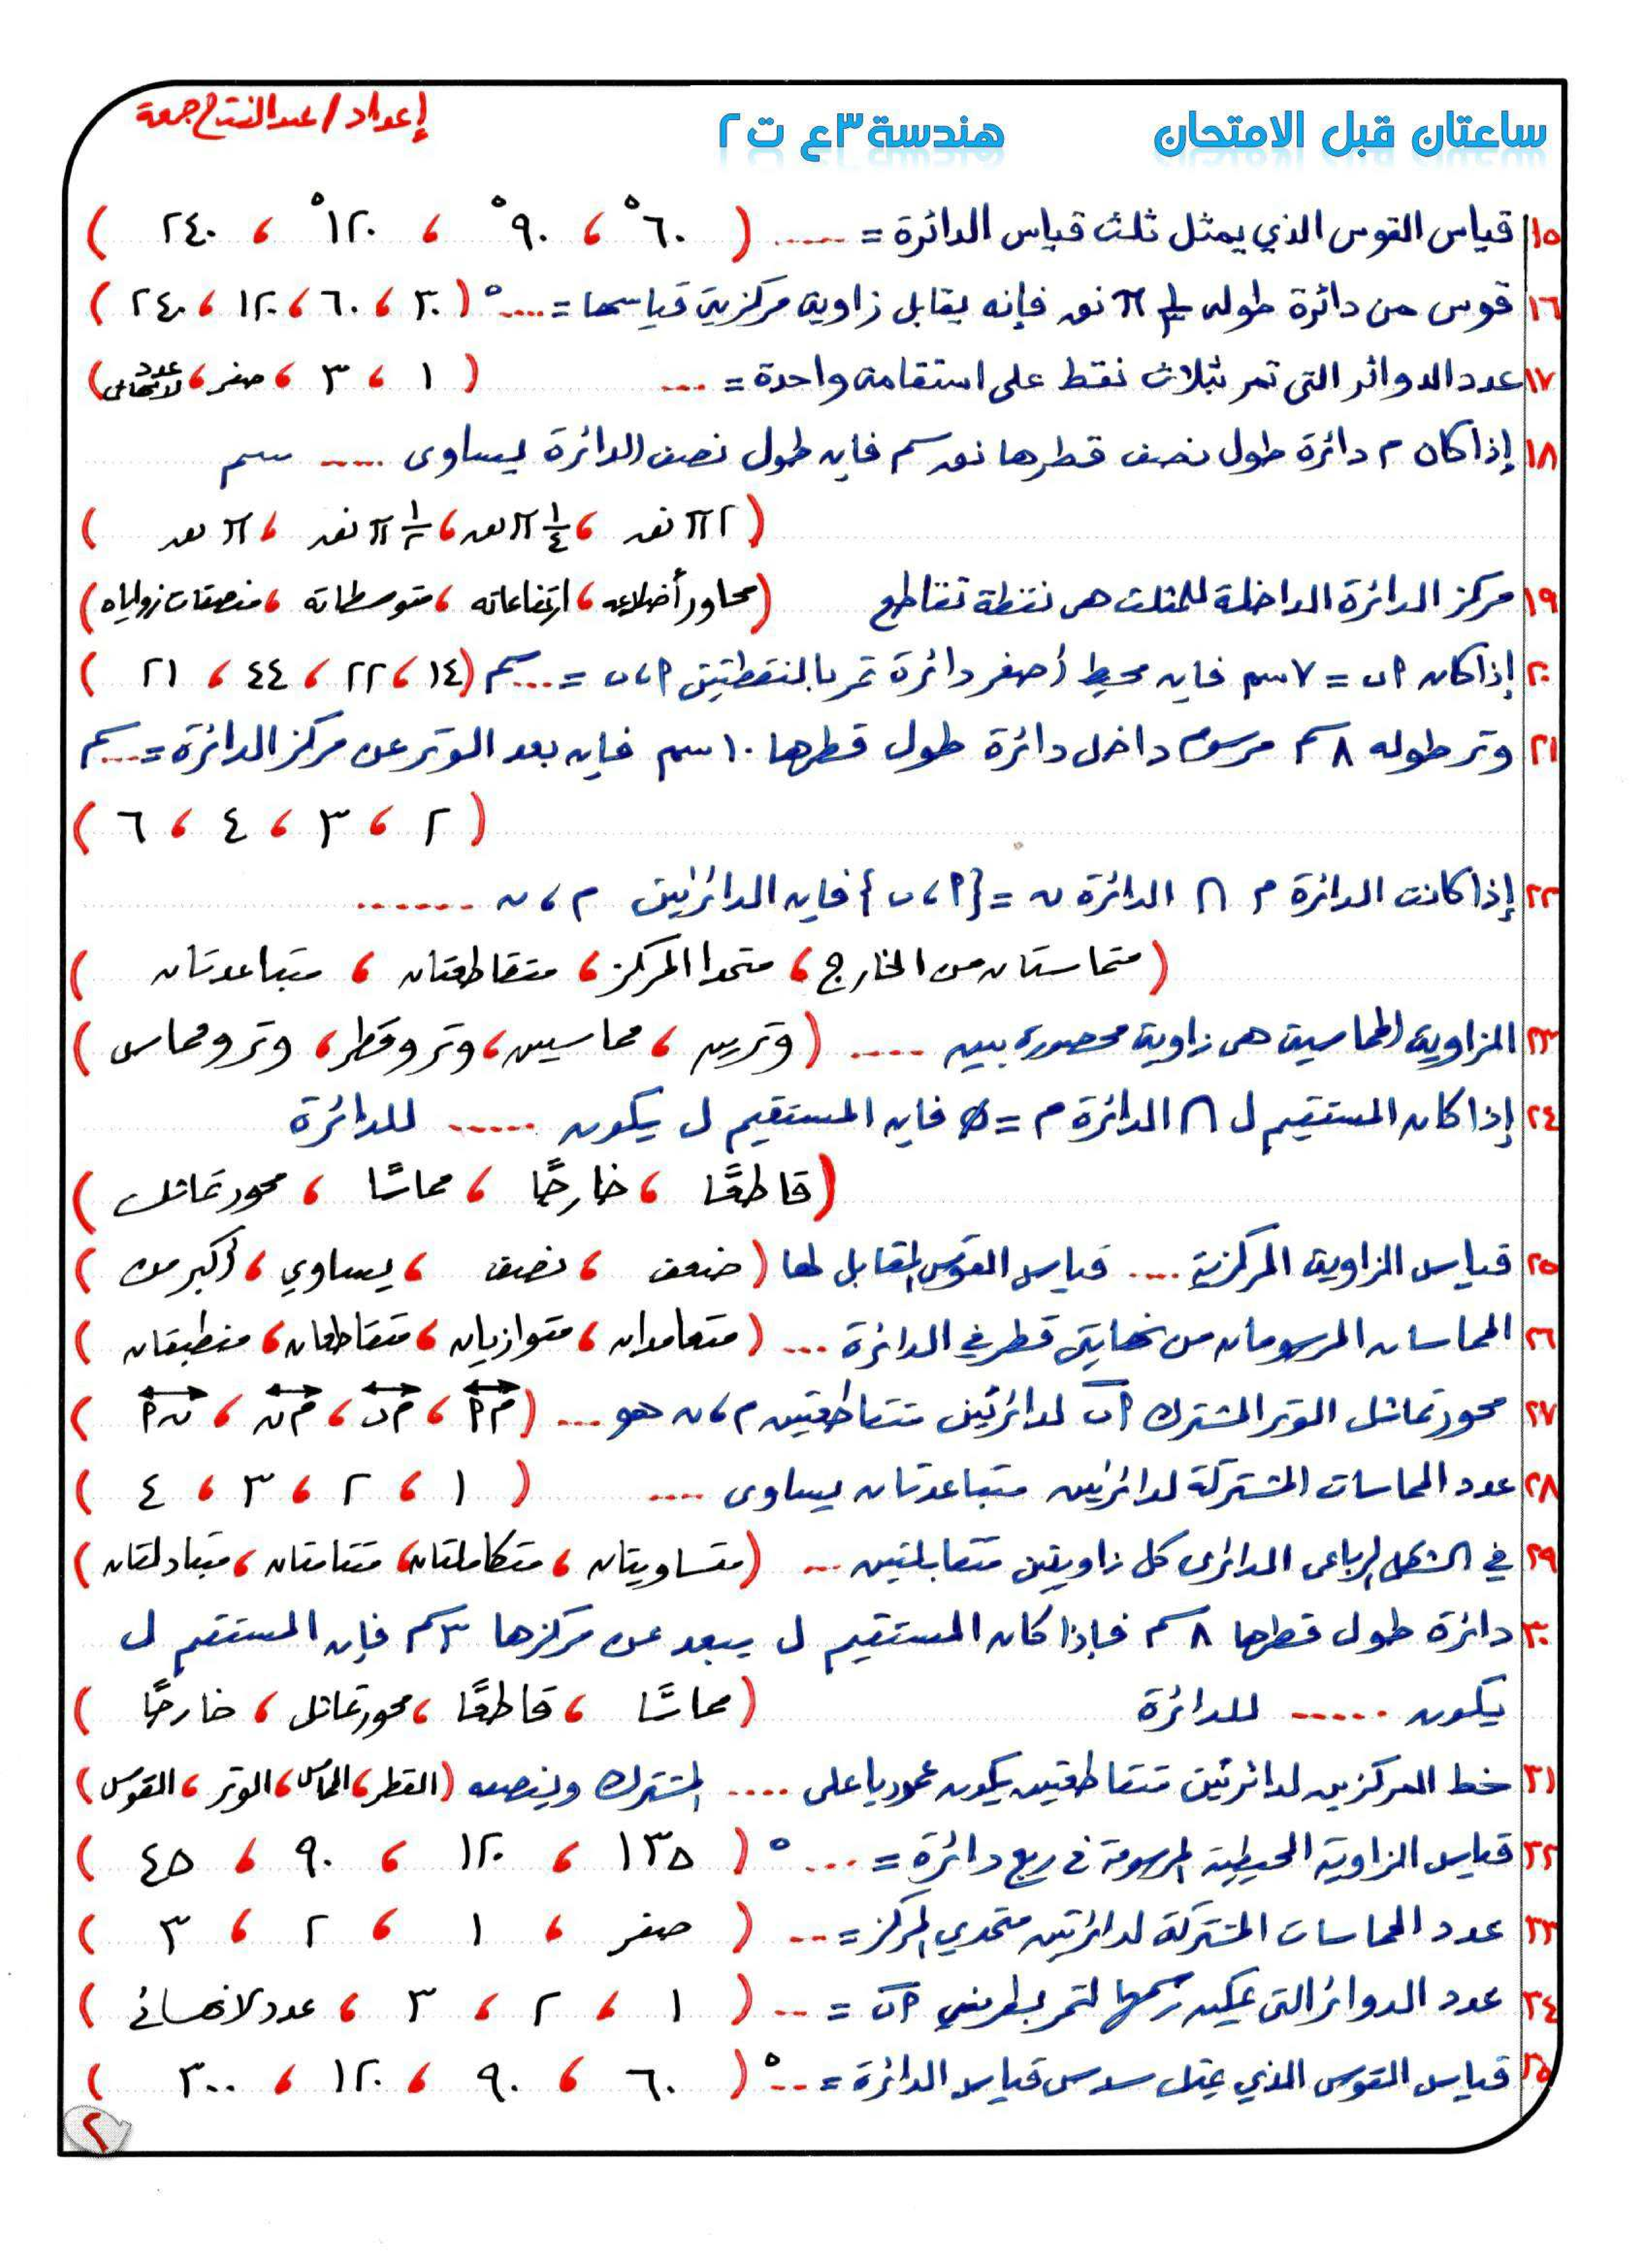 ساعتان قبل الامتحان هندسة ٣ع ت٢ إعداد / عبدالفتاح جمعة
١٥ قياس القوس الذي يمثل ثلث قياس الدائرة = ..... ( ٦٠° ، ٩٠° ، ١٢٠° ، ٢٤٠ )
١٦ قوس من دائرة طوله ١/٣ π نق فإنه يقابل زاوية مركزية قياسها = ....° ( ٣٠ ، ٦٠ ، ١٢٠ ، ٢٤٠ )
١٧ عدد الدوائر التى تمر بثلاث نقط على استقامة واحدة = ... ( ١ ، ٣ ، صفر ، عدد لانهائى )
١٨ إذا كان م دائرة طول نصف قطرها نق سم فإن طول نصف الدائرة يساوى .... سم
( ٢π نق ، ١/٤ π نق ، ١/٢ π نق ، π نق )
١٩ مركز الدائرة الداخلة للمثلث هى نقطة تقاطع ( محاور أضلاعه ، ارتفاعاته ، متوسطاته ، منصفات زواياه )
٢٠ إذا كان ٩ب = ٧ سم فإن محيط أصغر دائرة تمر بالنقطتين ٩،ب = ....سم ( ١٤ ، ٢٢ ، ٤٤ ، ٢١ )
٢١ وتر طوله ٨ سم مرسوم داخل دائرة طول قطرها ١٠ سم فإن بعد الوتر عن مركز الدائرة = ....سم
( ٢ ، ٣ ، ٤ ، ٦ )
٢٢ إذا كانت الدائرة م ∩ الدائرة ن = {٩ ، ب} فإن الدائرتين م ، ن .......
( متماستان من الخارج ، متحدا المركز ، متقاطعتان ، متباعدتان )
٢٣ الزاوية المماسية هى زاوية محصورة بين ..... ( وترين ، مماسين ، وتر وقطر ، وتر ومماس )
٢٤ إذا كان المستقيم ل ∩ الدائرة م = ∅ فإن المستقيم ل يكون ...... للدائرة
( قاطعًا ، خارجًا ، مماسًا ، محور تماثل )
٢٥ قياس الزاوية المركزية .... قياس القوس المقابل لها ( ضعف ، نصف ، يساوي ، أكبر من )
٢٦ المماسان المرسومان من نهايتى قطر في الدائرة ... ( متعامدان ، متوازيان ، متقاطعان ، منطبقان )
٢٧ محور تماثل الوتر المشترك ٩ب لدائرتين متقاطعتين م ، ن هو .... ( م٩ ، مب ، من ، ن٩ )
٢٨ عدد المماسات المشتركة لدائرتين متباعدتان يساوى .... ( ١ ، ٢ ، ٣ ، ٤ )
٢٩ في الشكل الرباعى الدائرى كل زاويتين متقابلتين ... ( متساويتان ، متكاملتان ، متتامتان ، متبادلتان )
٣٠ دائرة طول قطرها ٨ سم فإذا كان المستقيم ل يبعد عن مركزها ٣ سم فإن المستقيم ل
يكون ...... للدائرة ( مماسًا ، قاطعًا ، محور تماثل ، خارجًا )
٣١ خط المركزين لدائرتين متقاطعتين يكون عموديا على .... المشترك وينصفه ( القطر ، المماس ، الوتر ، القوس )
٣٢ قياس الزاوية المحيطية المرسومة فى ربع دائرة = ....° ( ١٣٥ ، ١٢٠ ، ٩٠ ، ٤٥ )
٣٣ عدد المماسات المشتركة لدائرتين متحدي المركز = ... ( صفر ، ١ ، ٢ ، ٣ )
٣٤ عدد الدوائر التى يمكن رسمها لتمر بطرفي ٩ب = ... ( ١ ، ٢ ، ٣ ، عدد لانهائي )
٣٥ قياس القوس الذي يمثل سدس قياس الدائرة = ...° ( ٦٠ ، ٩٠ ، ١٢٠ ، ٣٠٠ )
٢